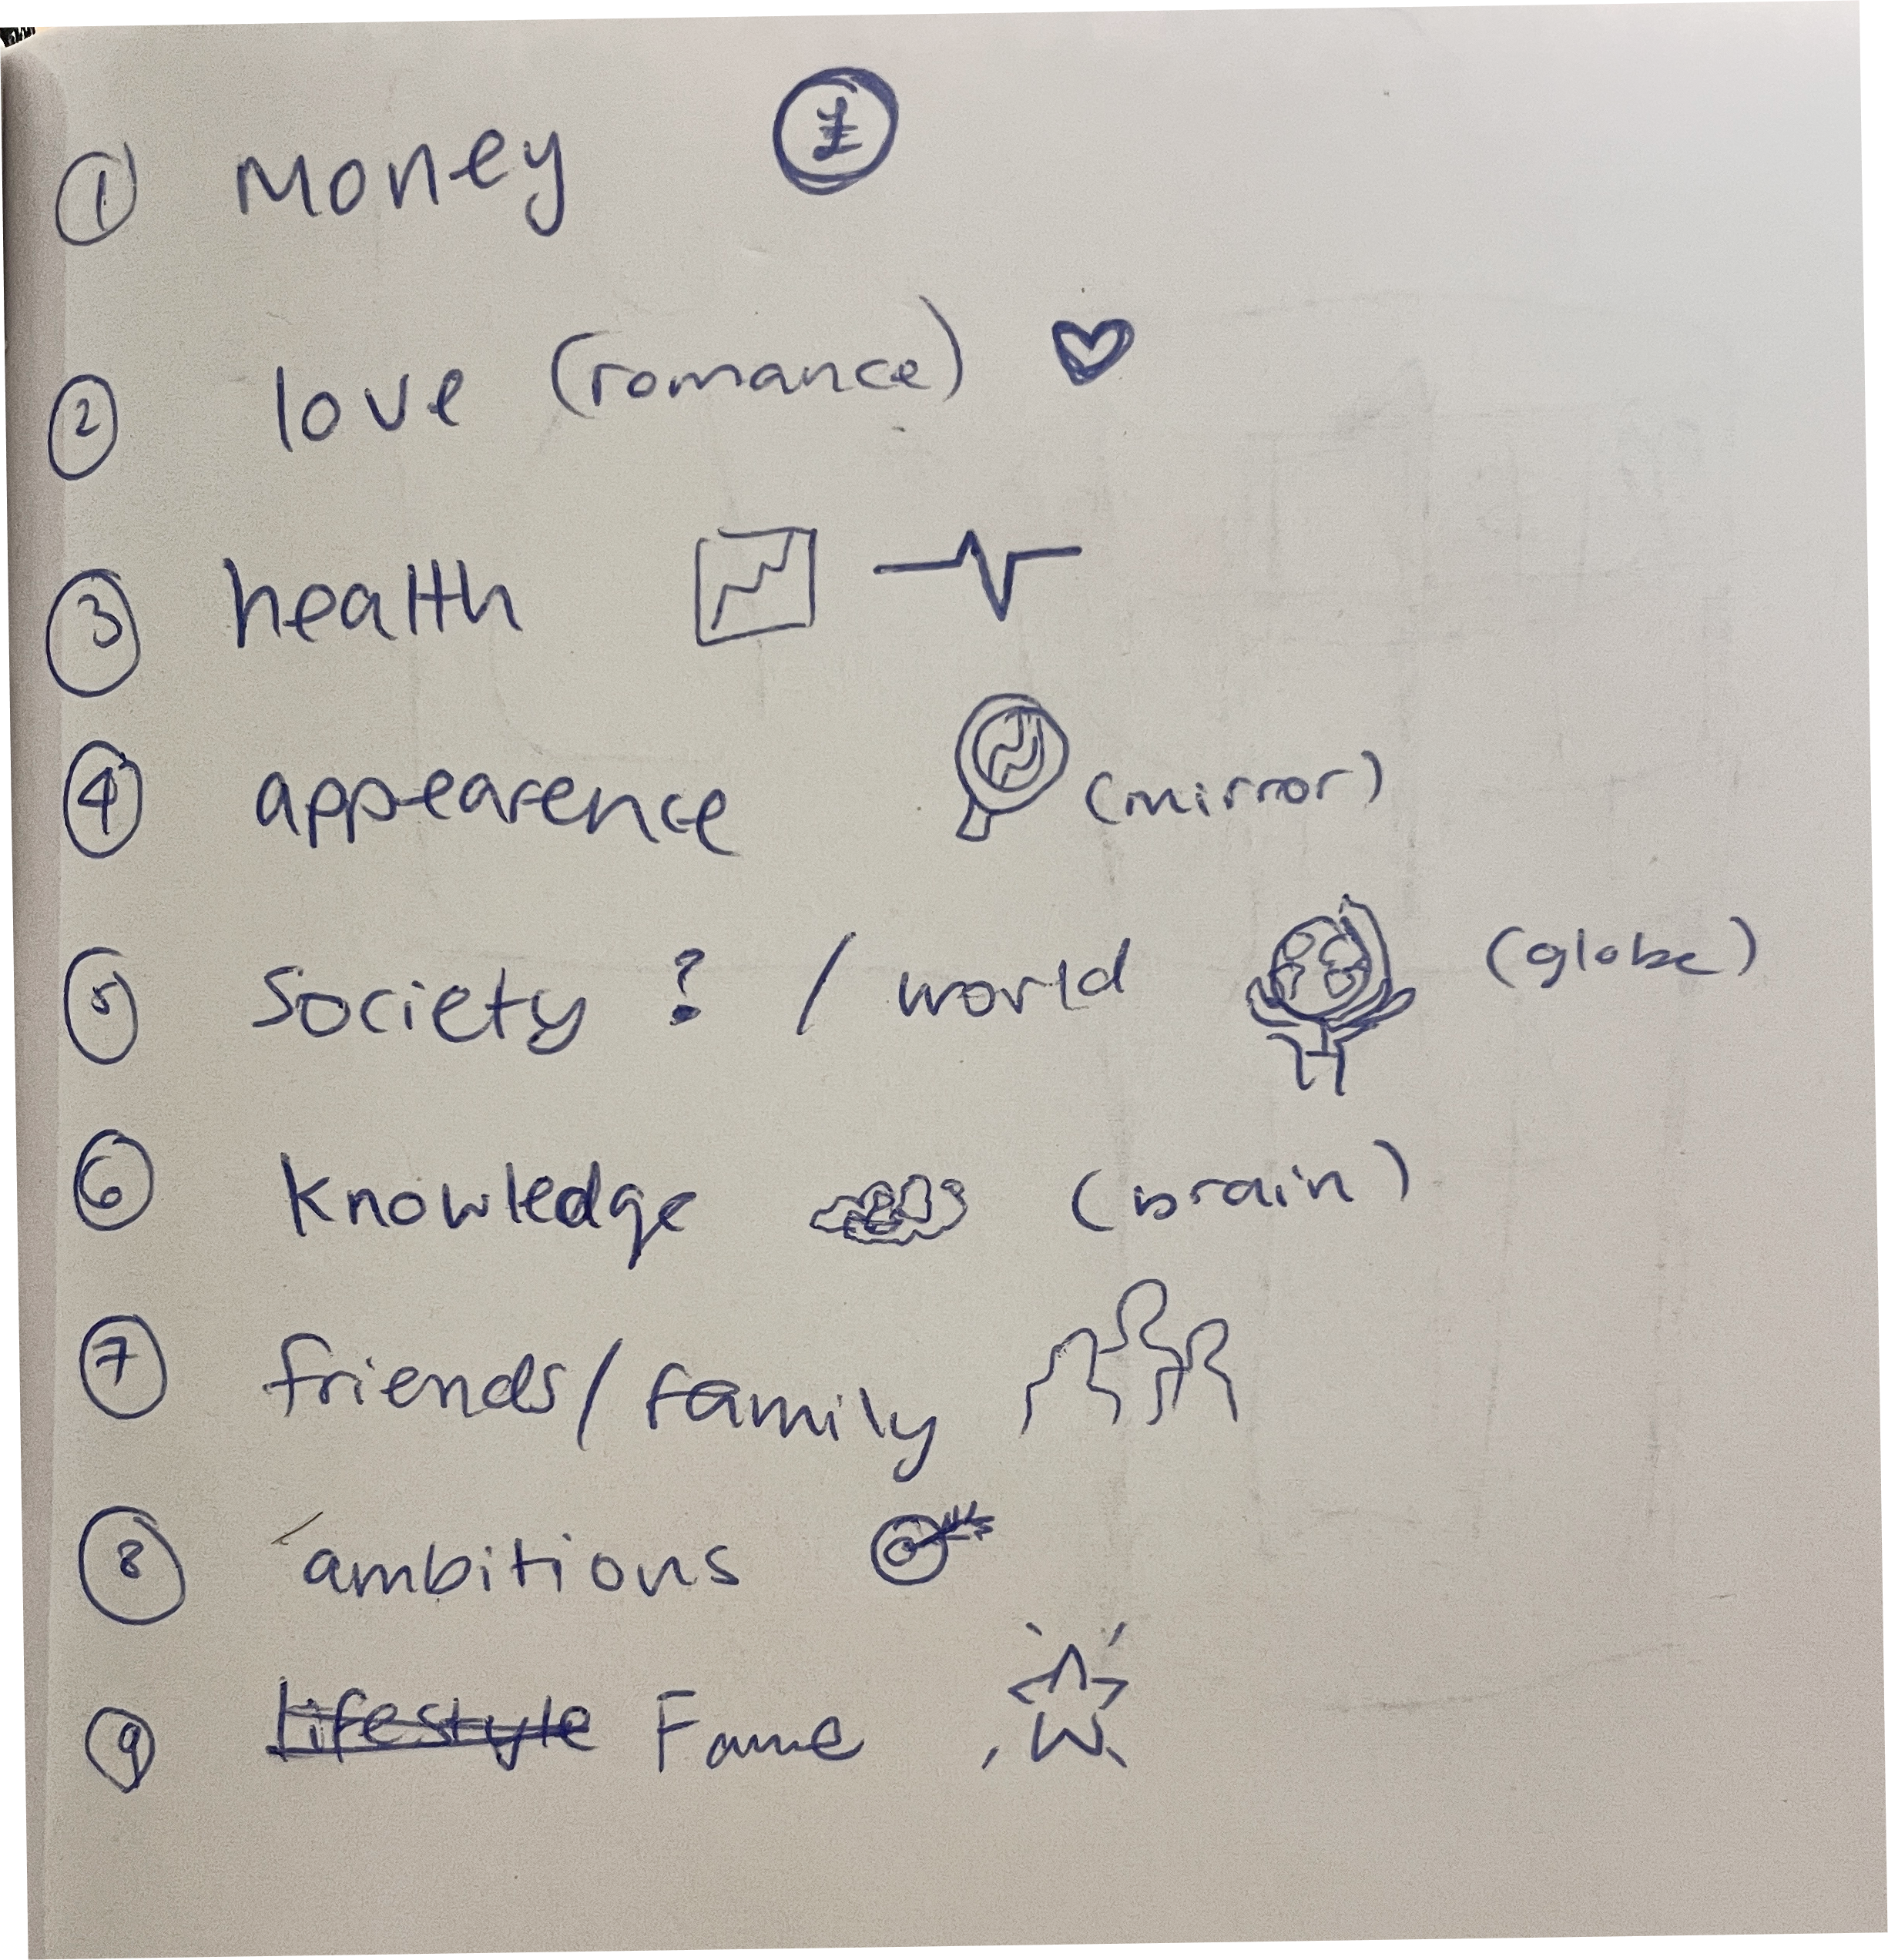 ① Money £
② love (romance)
③ health
④ appearence (mirror)
⑤ Society ? / world (globe)
⑥ knowledge (brain)
⑦ friends / family
⑧ ambitions
⑨ Lifestyle Fame